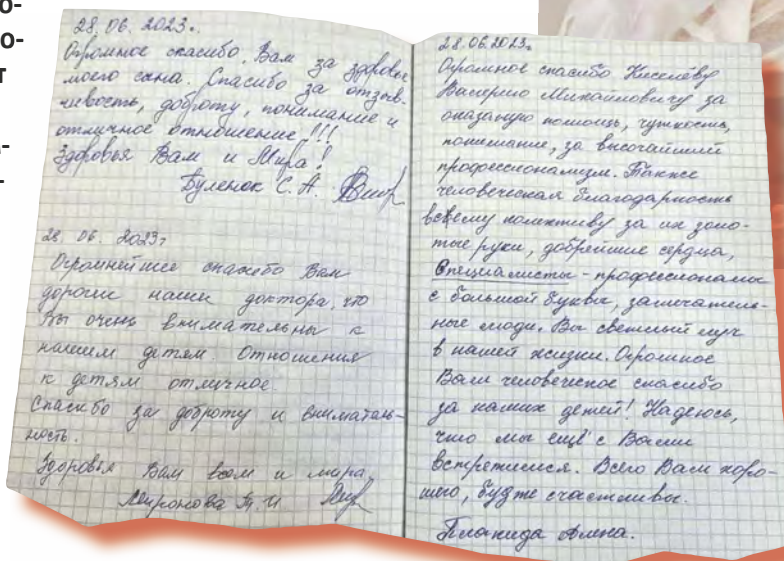 о-
о-
т
ь-
-
28.06.2023г.
Огромное спасибо Вам за здоровье
моего сына. Спасибо за отзыв-
чивость, доброту, понимание и
отличное отношение!!!
Здоровья Вам и Мира!
Буленок С. А.
28. 06. 2023г
Огромнейшее спасибо Вам
дорогие наши доктора, что
Вы очень внимательны к
нашим детям. Отношения
к детям отличное.
Спасибо за доброту и вниматель-
ность.
Здоровья Вам всем и мира
Миронова Т. И.
28.06.2023г.
Огромное спасибо Киселёву
Валерию Михайловичу за
оказаную помощь, чуткость,
понимание, за высочайший
профессионализм. Также
человеческая благодарность
всему колективу за их золо-
тые руки, добрейшие сердца,
Специалисты - профессионалы
с большой буквы, замечатель-
ные люди. Вы светлый луч
в нашей жизни. Огромное
Вам человеческое спасибо
за наших детей! Надеюсь,
что мы ещё с Вами
встретимся. Всего Вам хоро-
шего, будте счастливы.
Алёна.